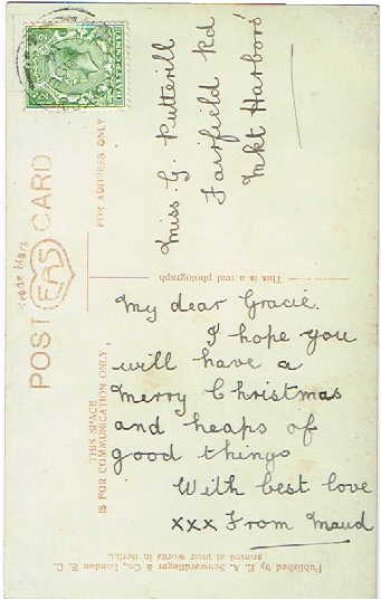 POST CARD
Trade Mark
EAS
FOR ADDRESS ONLY
THIS SPACE
IS FOR COMMUNICATION ONLY
This is a real photograph
Miss. G. Putterill
Fairfield Rd
Mkt Harboro'
My dear Gracie.
I hope you
will have a
Merry Christmas
and heaps of
good things
With best love
xxx From Maud
Published by E. A. Schwerdtfeger & Co., London E. C.
Printed at their works in Berlin.